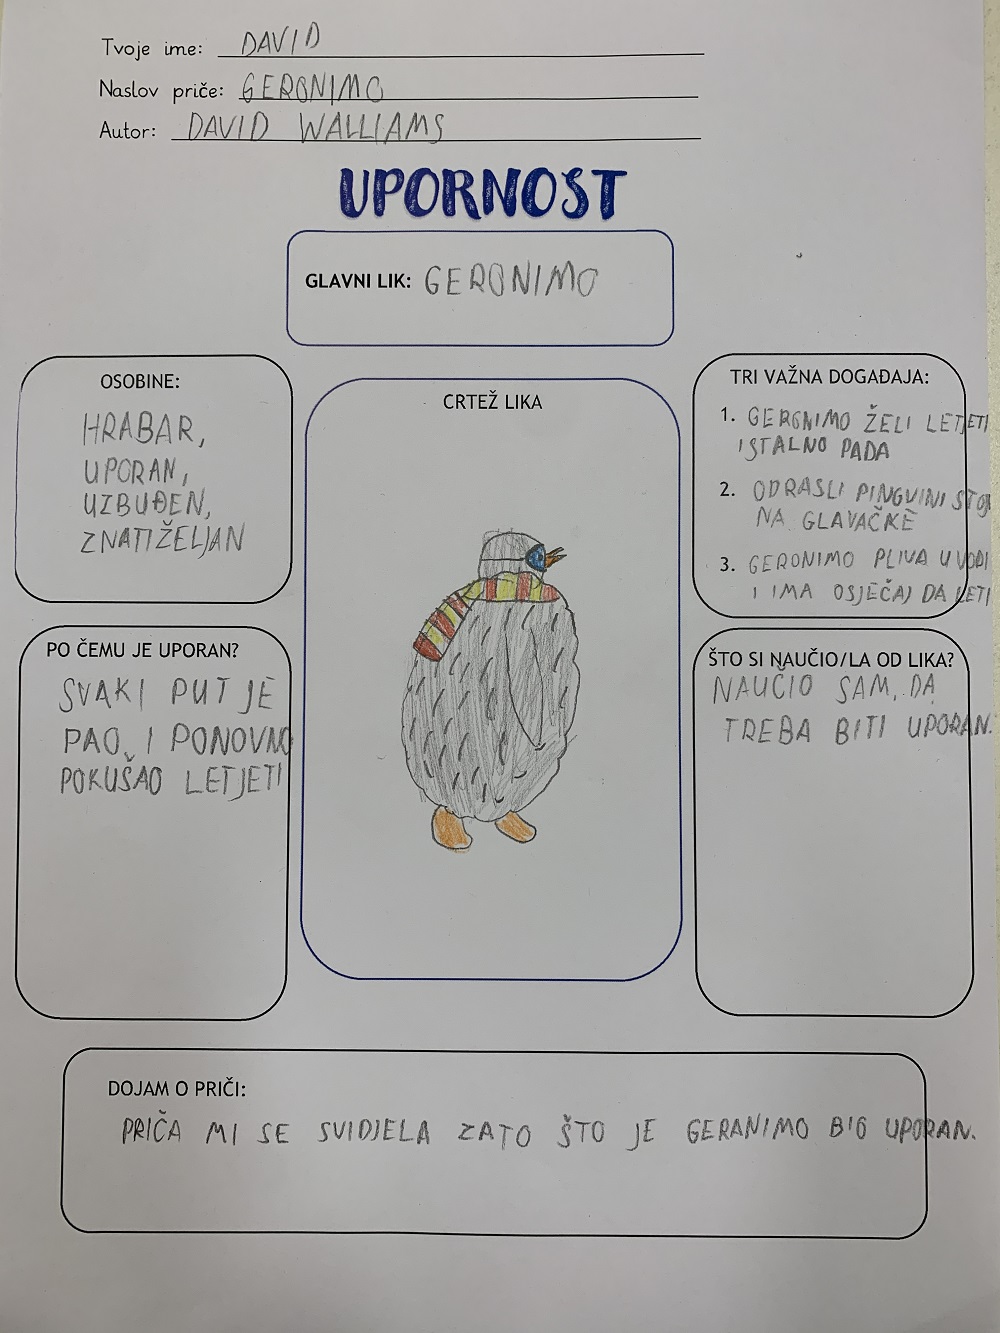 Tvoje ime: DAVID
Naslov priče: GERONIMO
Autor: DAVID WALLIAMS
UPORNOST
GLAVNI LIK: GERONIMO
OSOBINE:
HRABAR,
UPORAN,
UZBUĐEN,
ZNATIŽELJAN
CRTEŽ LIKA
TRI VAŽNA DOGAĐAJA:
1. GERONIMO ŽELI LETJETI
I STALNO PADA
2. ODRASLI PINGVINI STOJ
NA GLAVAČKE
3. GERONIMO PLIVA U VODI
I IMA OSJEČAJ DA LETI
PO ČEMU JE UPORAN?
SVAKI PUT JE
PAO, I PONOVNO
POKUŠAO LETJETI
ŠTO SI NAUČIO/LA OD LIKA?
NAUČIO SAM, DA
TREBA BITI UPORAN.
DOJAM O PRIČI:
PRIČA MI SE SVIDJELA ZATO ŠTO JE GERANIMO BIO UPORAN.